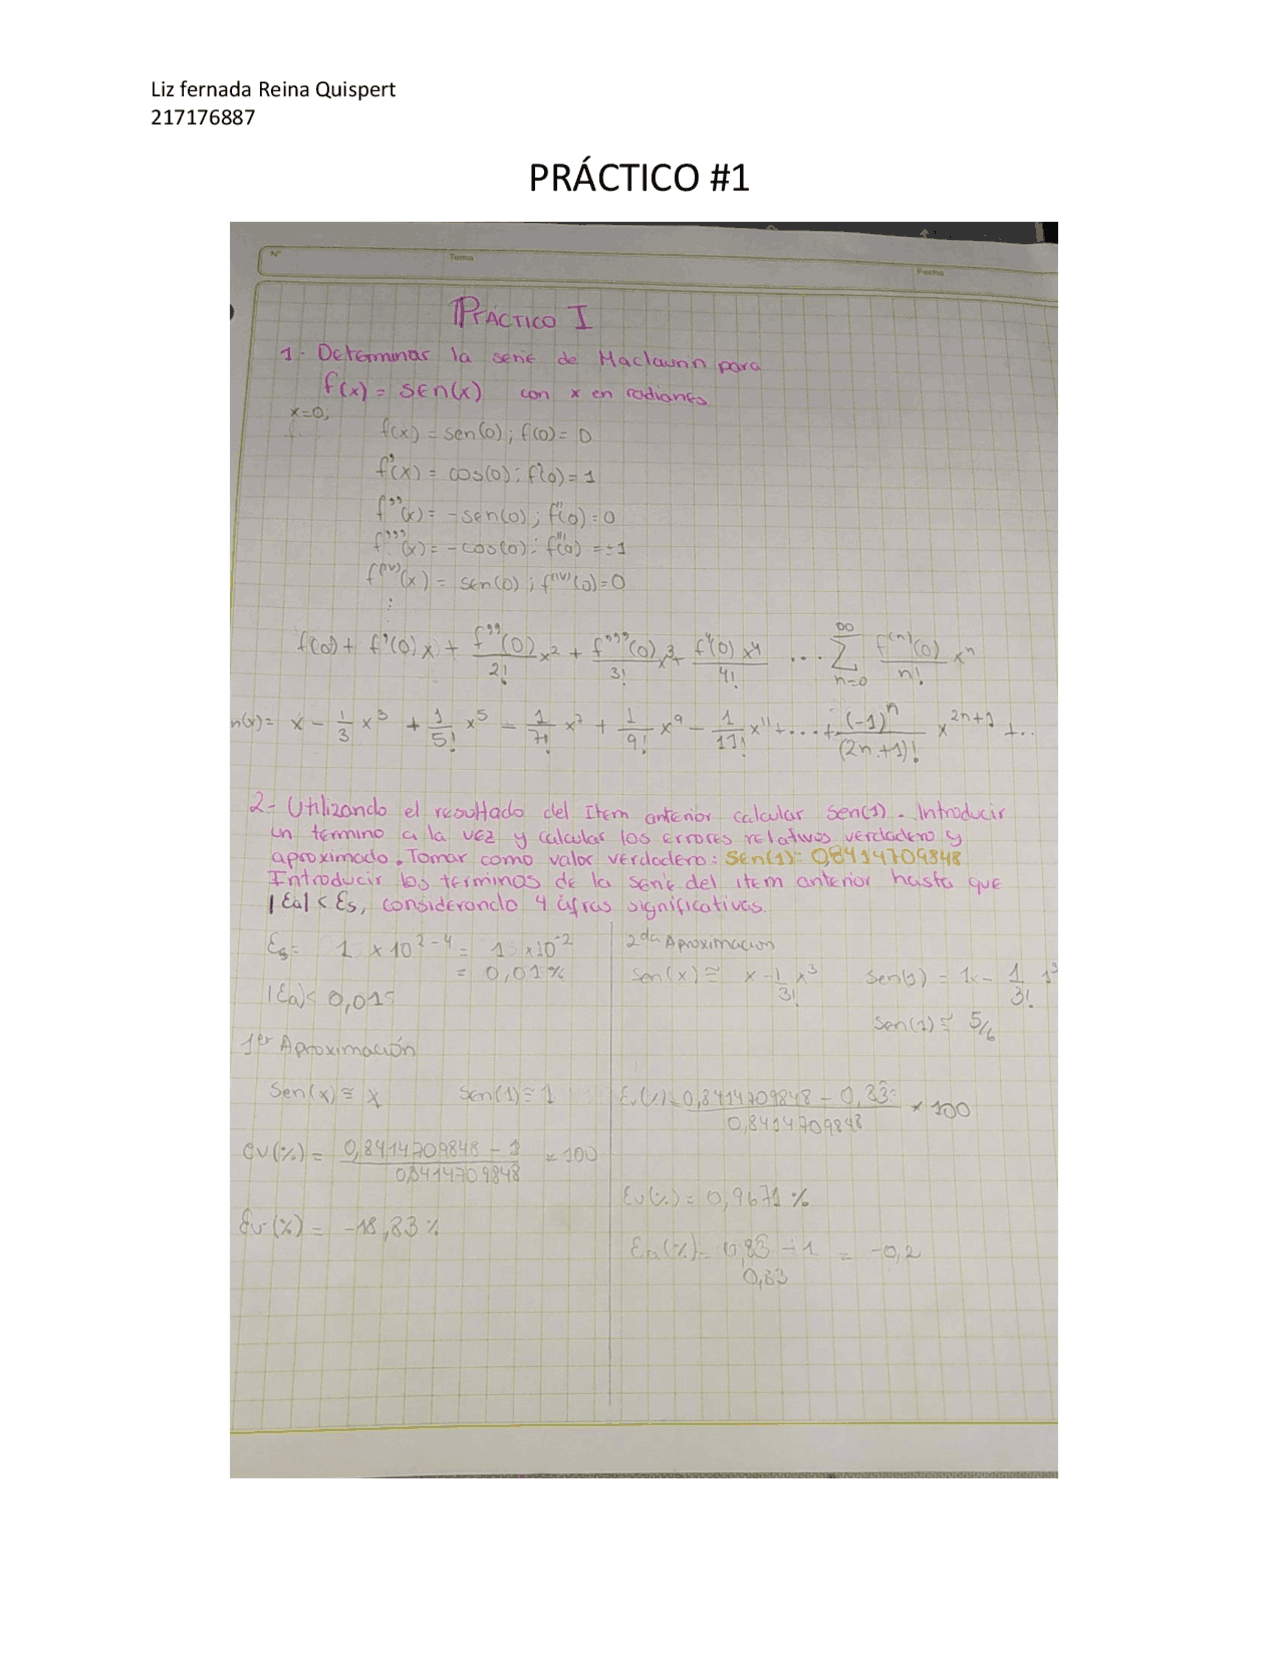 Liz fernada Reina Quispert
217176887
PRÁCTICO #1
N°
Tema
Fecha
PRÁCTICO I
1. Determinar la serie de Maclaurin para
f(x) = sen(x) con x en radianes
x=0,
f(x) = sen(0); f(0)= 0
f'(x) = cos(0); f'(0)=1
f''(x)= -sen(0); f''(0)=0
f'''(x)= -cos(0); f'''(0) =-1
f^(IV)(x) = sen(0); f^(IV)(0)=0
⋮
f(0) + f'(0)x + f''(0)/2! x² + f'''(0)/3! x³ + f⁴(0)/4! x⁴ ... ∑ n=0 ∞ f^(n)(0)/n! x^n
n(x)= x - 1/3 x³ + 1/5! x⁵ - 1/7! x⁷ + 1/9! x⁹ - 1/11! x¹¹ + ... + (-1)^n/(2n+1)! x^(2n+1) + ..
2- Utilizando el resultado del Item anterior calcular sen(1). Introducir
un término a la vez y calcular los errores relativos verdadero y
aproximado. Tomar como valor verdadero: sen(1)= 0,8414709848
Introducir los términos de la serie del item anterior hasta que
|Ea| < Es, considerando 4 cifras significativas.
Es= 1 x 10^(2-4) = 1 x10^-2
= 0,01%
|Ea|< 0,01
1er Aproximación
Sen(x) ≅ x Sen(1) ≅ 1
ev(%) = (0,8414709848 - 1)/0,8414709848 × 100
Ev(%) = -18,83 %
2da Aproximacion
Sen(x) ≅ x - 1/3! x³ Sen(1) = 1 - 1/3! 1³
Sen(1) ≅ 5/6
Ev(%)= (0,8414709848 - 0,83)/0,8414709848 × 100
Ev(%) = 0,9671 %
Ea(%)= (0,83 - 1)/0,83 = -0,2